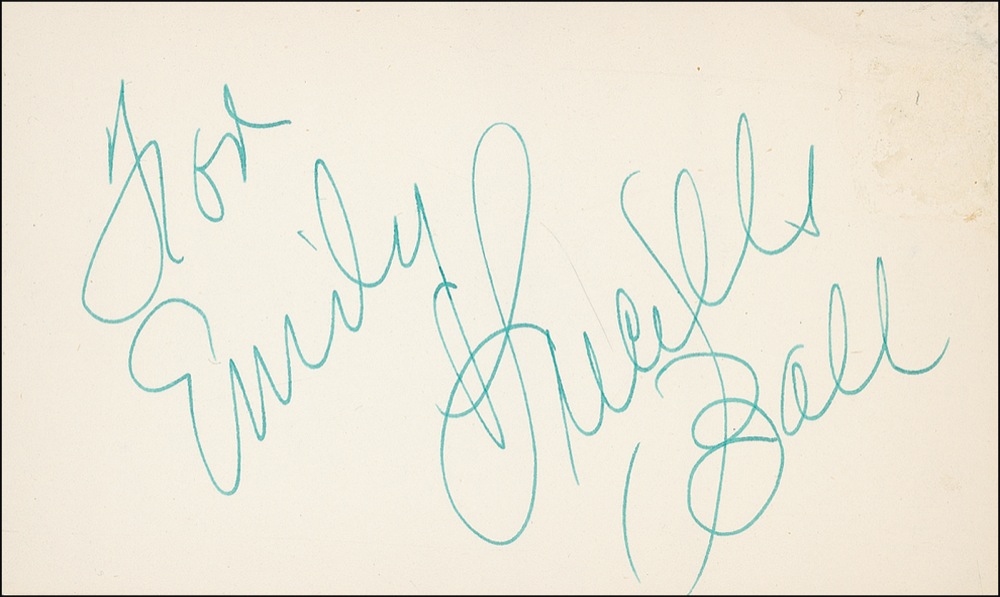 For
Emily
Lucille
Ball